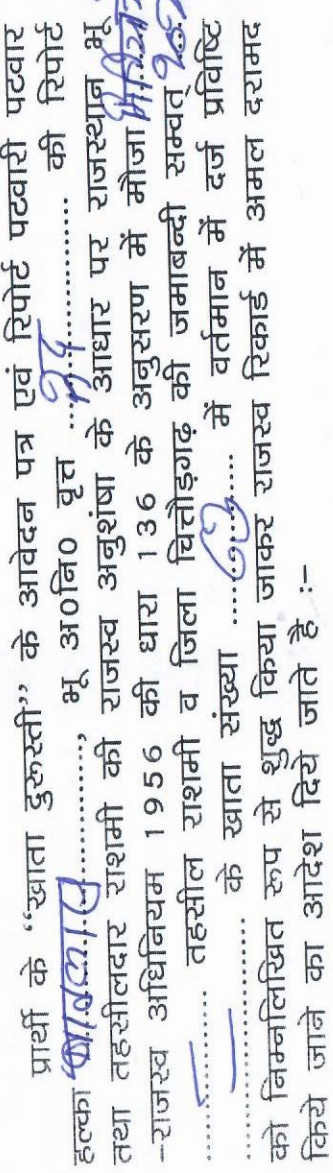 प्रार्थी के “खाता दुरूस्ती” के आवेदन पत्र एवं रिपोर्ट पटवारी पटवार
हल्का .................... भू अ०नि० वृत ................... की रिपोर्ट
तथा तहसीलदार राशमी की राजस्व अनुशंषा के आधार पर राजस्थान भू
-राजस्व अधिनियम 1956 की धारा 136 के अनुसरण में मौजा
.......... तहसील राशमी व जिला चित्तौड़गढ़ की जमाबन्दी सम्वत्
.................... के खाता संख्या .......... में वर्तमान में दर्ज प्रविष्टि
को निम्नलिखित रूप से शुद्ध किया जाकर राजस्व रिकार्ड में अमल दरामद
किये जाने का आदेश दिये जाते है :-